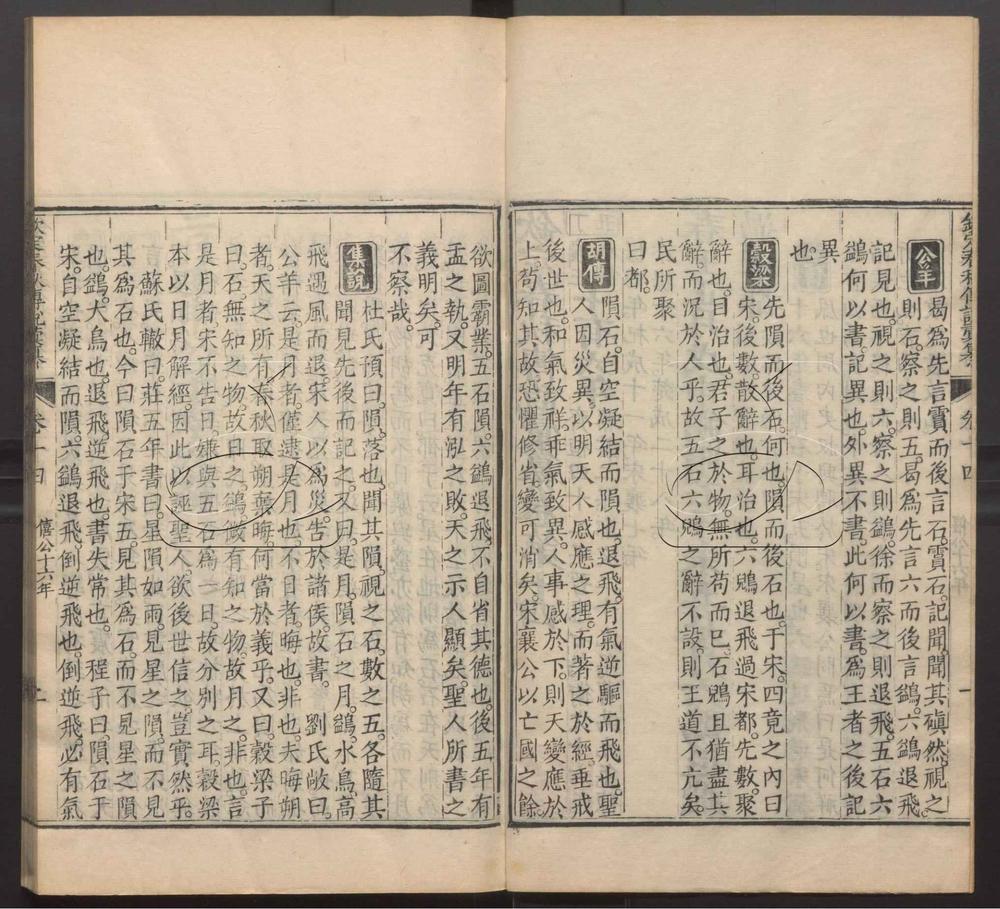 公羊 曷爲先言霣而後言石。霣石。記聞。聞其磌然。視之
則石。察之則五。曷爲先言六而後言鷁。六鷁退飛。
記見也。視之則六。察之則鷁。徐而察之則退飛。五石六
鷁何以書。記異也。外異不書。此何以書。爲王者之後記
異
也。
穀梁 先隕而後石。何也。隕而後石也。于宋。四竟之內曰
宋。後數。散辭也。耳治也。六鶂退飛過宋都。先數。聚
辭也。目治也。君子之於物。無所苟而已。石鶂且猶盡其
辭。而況於人乎。故五石六鶂之辭不設。則王道不亢矣。
民所聚
曰都。
胡傳 隕石。自空凝結而隕也。退飛。有氣逆驅而飛也。聖
人因災異。以明天人感應之理。而著之於經。垂戒
後世也。和氣致祥。乖氣致異。人事感於下。則天變應於
上。苟知其故。恐懼修省。變可消矣。宋襄公以亡國之餘。
欲圖霸業。五石隕。六鷁退飛。不自省其德也。後五年有
盂之執。又明年有泓之敗。天之示人顯矣。聖人所書之
義明矣。可
不察哉。
集說 杜氏預曰。隕。落也。聞其隕。視之石。數之五。各隨其
聞見先後而記之。又曰。是月。隕石之月。鷁。水鳥。高
飛遇風而退。宋人以爲災。告於諸侯。故書。 劉氏敞曰。
公羊云。是月者。僅逮是月也。不日者。晦也。非也。夫晦朔
者。天之所有。春秋取朔棄晦。何當於義乎。又曰。穀梁子
曰。石無知之物。故日之。鷁微有知之物。故月之。非也。言
是月者。宋不告日。嫌與五石爲一日。故分別之耳。穀梁
本以日月解經。因此以誣聖人。欲後世信之。豈實然乎。
蘇氏轍曰。莊五年書曰。星隕如雨。見星之隕。而不見
其爲石也。今曰隕石于宋五。見其爲石。而不見星之隕
也。鷁。大鳥也。退飛。逆飛也。書失常也。 程子曰。隕石于
宋。自空凝結而隕。六鷁退飛。倒逆飛也。倒逆飛。必有氣
卷十四
一
卷十四 僖公十六年
二